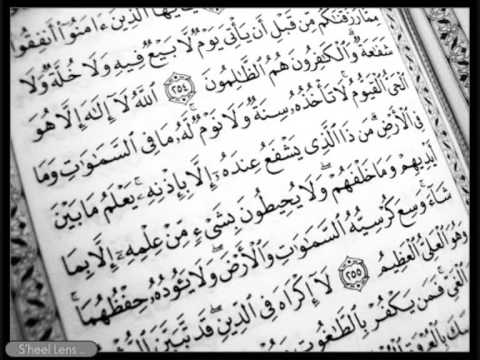 يَٰٓأَيُّهَا ٱلَّذِينَ ءَامَنُوٓا۟ أَنفِقُوا۟
مِمَّا رَزَقْنَٰكُم مِّن قَبْلِ أَن يَأْتِىَ يَوْمٌ لَّا بَيْعٌ فِيهِ وَلَا خُلَّةٌ وَلَا
شَفَٰعَةٌ وَٱلْكَٰفِرُونَ هُمُ ٱلظَّٰلِمُونَ ٢٥٤ ٱللَّهُ لَآ إِلَٰهَ إِلَّا هُوَ
ٱلْحَىُّ ٱلْقَيُّومُ لَا تَأْخُذُهُۥ سِنَةٌ وَلَا نَوْمٌ لَّهُۥ مَا فِى ٱلسَّمَٰوَٰتِ وَمَا
فِى ٱلْأَرْضِ مَن ذَا ٱلَّذِى يَشْفَعُ عِندَهُۥٓ إِلَّا بِإِذْنِهِۦ يَعْلَمُ مَا بَيْنَ
أَيْدِيهِمْ وَمَا خَلْفَهُمْ وَلَا يُحِيطُونَ بِشَىْءٍ مِّنْ عِلْمِهِۦٓ إِلَّا بِمَا
شَآءَ وَسِعَ كُرْسِيُّهُ ٱلسَّمَٰوَٰتِ وَٱلْأَرْضَ وَلَا يَـُٔودُهُۥ حِفْظُهُمَا
وَهُوَ ٱلْعَلِىُّ ٱلْعَظِيمُ ٢٥٥ لَآ إِكْرَاهَ فِى ٱلدِّينِ قَد تَّبَيَّنَ
ٱلْغَىِّ فَمَن يَكْفُرْ بِٱلطَّٰغُوتِ
بِٱلْعُرْوَةِ
S'heel Lens ..